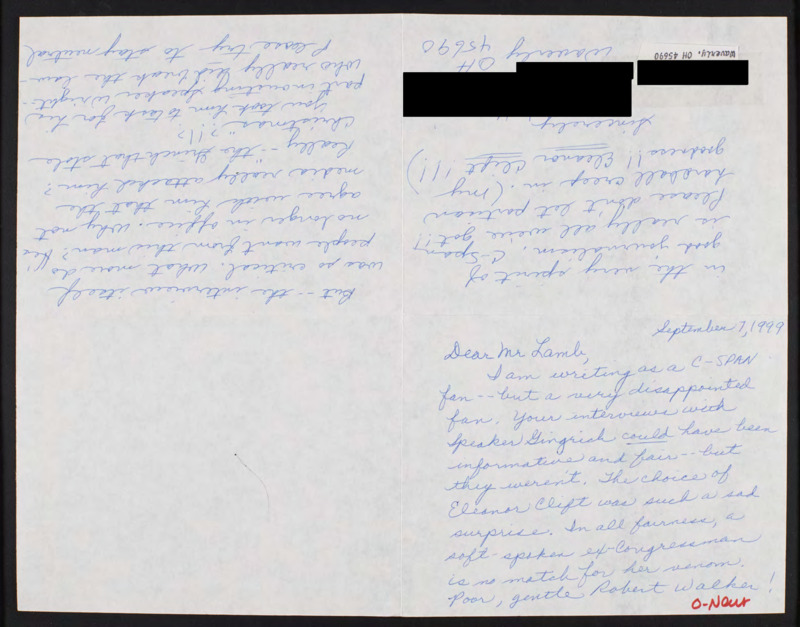 September 7, 1999
Dear Mr Lamb,
I am writing as a C-SPAN
fan -- but a very disappointed
fan. Your interviews with
Speaker Gingrich could have been
informative and fair -- but
they weren't. The choice of
Eleanor Clift was such a sad
surprise. In all fairness, a
soft-spoken ex-Congressman
is no match for her venom.
Poor, gentle Robert Walker!
O-Newt
But -- the interview itself
was so critical. What more do
people want from this man? He's
no longer in office. Why not
agree with him that the
media really attacked him?
Really -- "the Grinch that stole
Christmas"?!!
You took him to task for his
part in ousting Speaker Wright --
who really did break the law --
Please try to stay neutral
in the very spirit of
good journalism. C-Span
is really all we've got!!
Please don't let partisan
hardball creep in. (My
goodness!! Eleanor Clift!!!)
Sincerely,
Waverly
OH
45690
Waverly, OH 45690